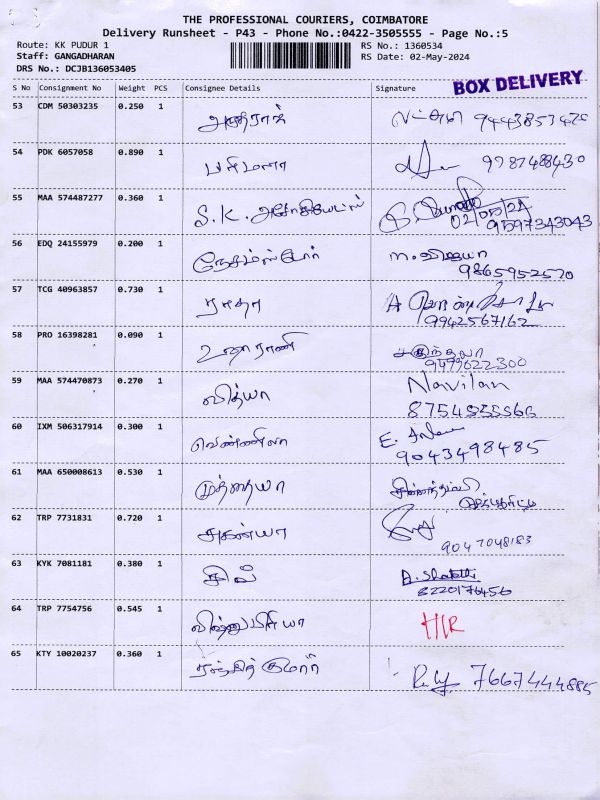 THE PROFESSIONAL COURIERS, COIMBATORE
Delivery Runsheet - P43 - Phone No.:0422-3505555 - Page No.:5
Route: KK PUDUR 1 RS No.: 1360534
Staff: GANGADHARAN RS Date: 02-May-2024
DRS No.: DCJB136053405
BOX DELIVERY
S No Consignment No Weight PCS Consignee Details Signature
53 CDM 50303235 0.250 1
54 PDK 6057058 0.890 1 பரிமளா 9787488430
55 MAA 574487277 0.360 1 S.K. அசோசியேட்ஸ்
02/05/24
9597343043
56 EDQ 24155979 0.200 1 m. விஜயா
9865952570
57 TCG 40963857 0.730 1 ராதா A
9942567162
58 PRO 16398281 0.090 1 உஷாராணி சகுந்தலா
59 MAA 574470873 0.270 1 வித்யா Navilan
8754555566
60 IXM 506317914 0.300 1 வெண்ணிலா E.
9043498485
61 MAA 650008613 0.530 1 முத்தையா
62 TRP 7731831 0.720 1 சுகன்யா
9047048183
63 KYK 7081181 0.380 1
8220176456
64 TRP 7754756 0.545 1 விஷ்ணுபிரியா H/R
65 KTY 10020237 0.360 1 ரஞ்சித் குமார் 7667444885